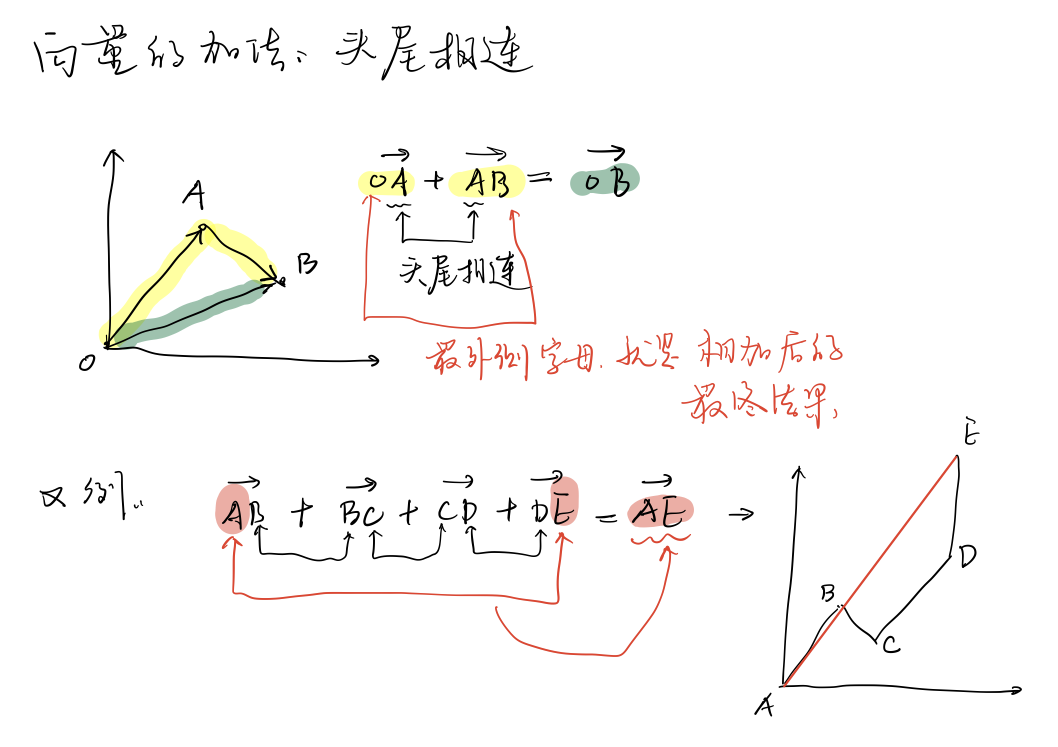 向量的加法：头尾相连
A
B
O
OA + AB = OB
头尾相连
最外侧字母，就是相加后的
最终结果，
又例：
AB + BC + CD + DE = AE →
E
D
B
C
A